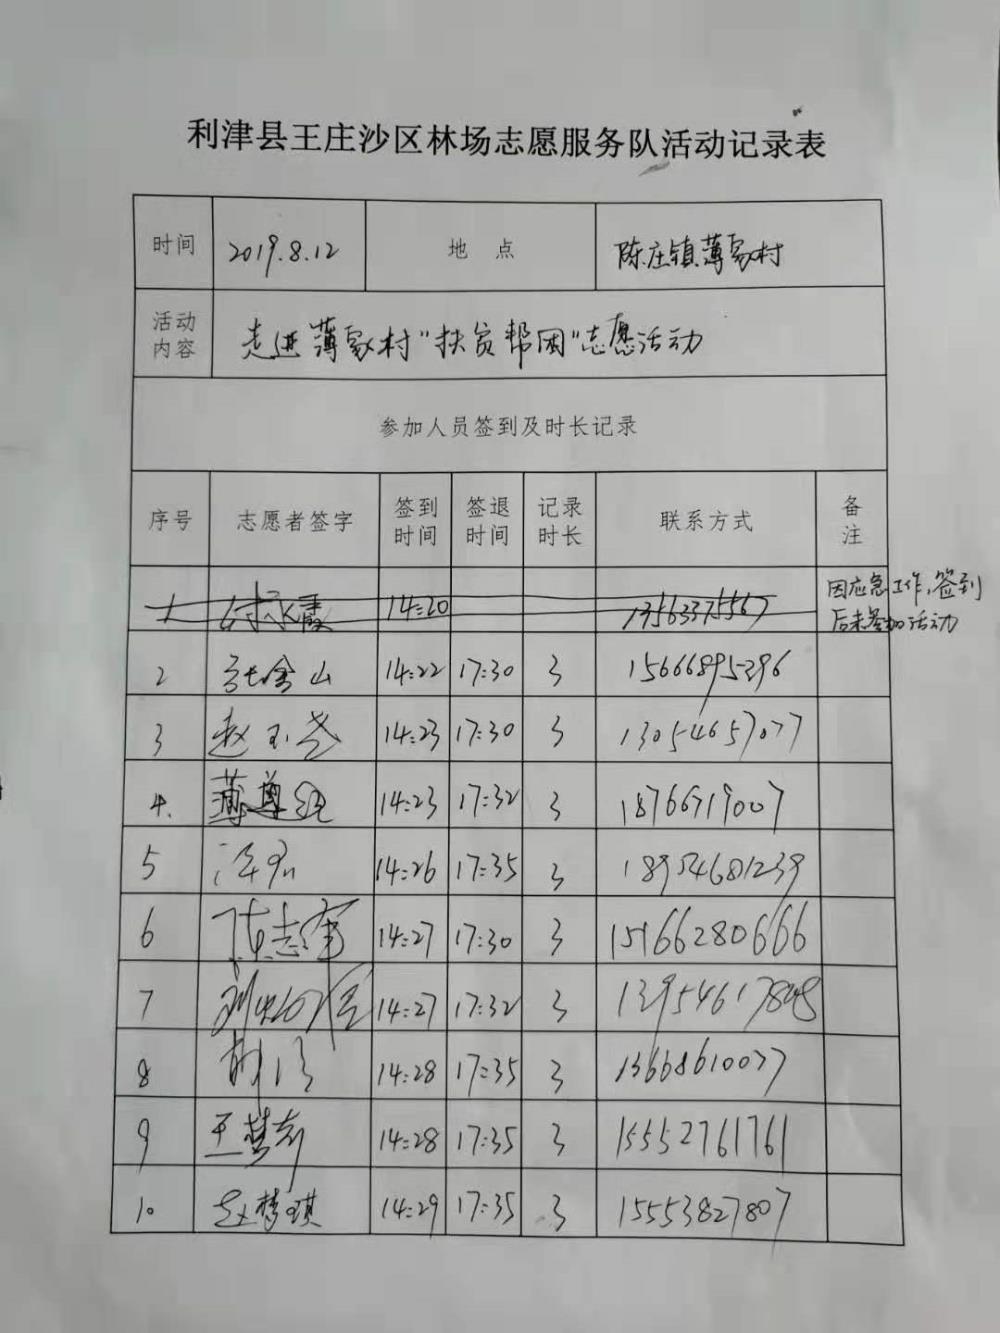 利津县王庄沙区林场志愿服务队活动记录表
时间 2019.8.12 地 点 陈庄镇薄家村
活动内容 走进薄家村"扶贫帮困"志愿活动
参加人员签到及时长记录
序号 志愿者签字 签到时间 签退时间 记录时长 联系方式 备注
14:20 13563375567 因应急工作,签到
后未参加活动
2 张金山 14:22 17:30 3 15666895296
3 赵玉尧 14:23 17:30 3 13054657077
4. 薄尊 14:23 17:32 3 18766719007
5 14:26 17:35 3 18954681239
6 陈志军 14:27 17:30 3 15166280666
7 14:27 17:32 3 13954617848
8 14:28 17:35 3 13668610077
9 王梦 14:28 17:35 3 15552761761
10 赵梦琪 14:29 17:35 3 15553827807